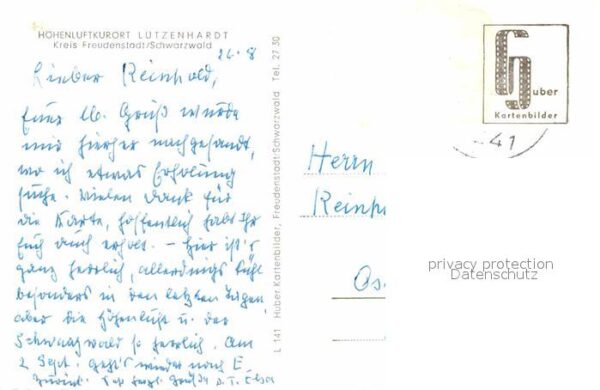 HÖHENLUFTKURORT LÜTZENHARDT
Kreis Freudenstadt/Schwarzwald
26.8
Lieber Reinhold,
Eure lb. Grüß wurde
mir hierher nachgesandt,
wo ich etwas Erholung
suche. Vielen Dank für
die Karte, hoffentlich habt Ihr
Euch auch erholt. – Hier ist's
ganz herrlich, allerdings kühl
besonders in den letzten Tagen,
aber die Höhenluft u. der
Schwarzwald so herrlich. Am
2 Sept. geht's wieder nach E.
zurück. herzl. Grüße
L 141 Huber Kartenbilder, Freudenstadt/Schwarzwald Tel. 27 30
Huber
Kartenbilder
41
Herrn
Reinh
Os
privacy protection
Datenschutz